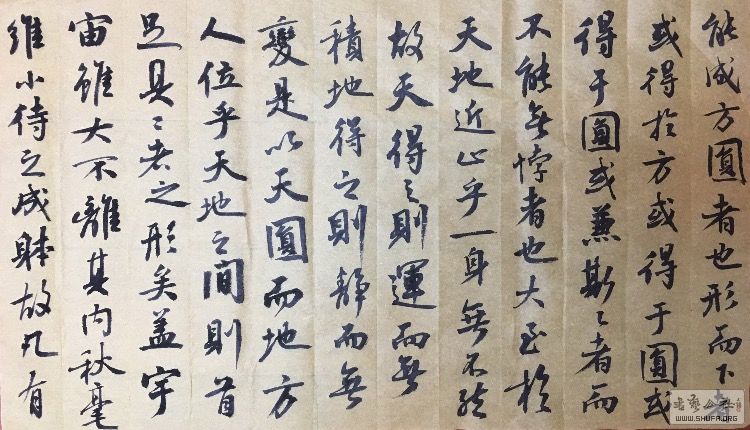 能成方圓者也形而下者
或得於方或得于圓或
得于圓或兼斯二者而
不能無悖者也大至於
天地近止乎一身無不然
故天得之則運而無
積地得之則靜而無
變是以天圓而地方
人位乎天地之間則首
足具二者之形矣蓋宇
宙雖大不離其内秋毫
維小待之成躰故凡有
WWW.SHUFA.ORG